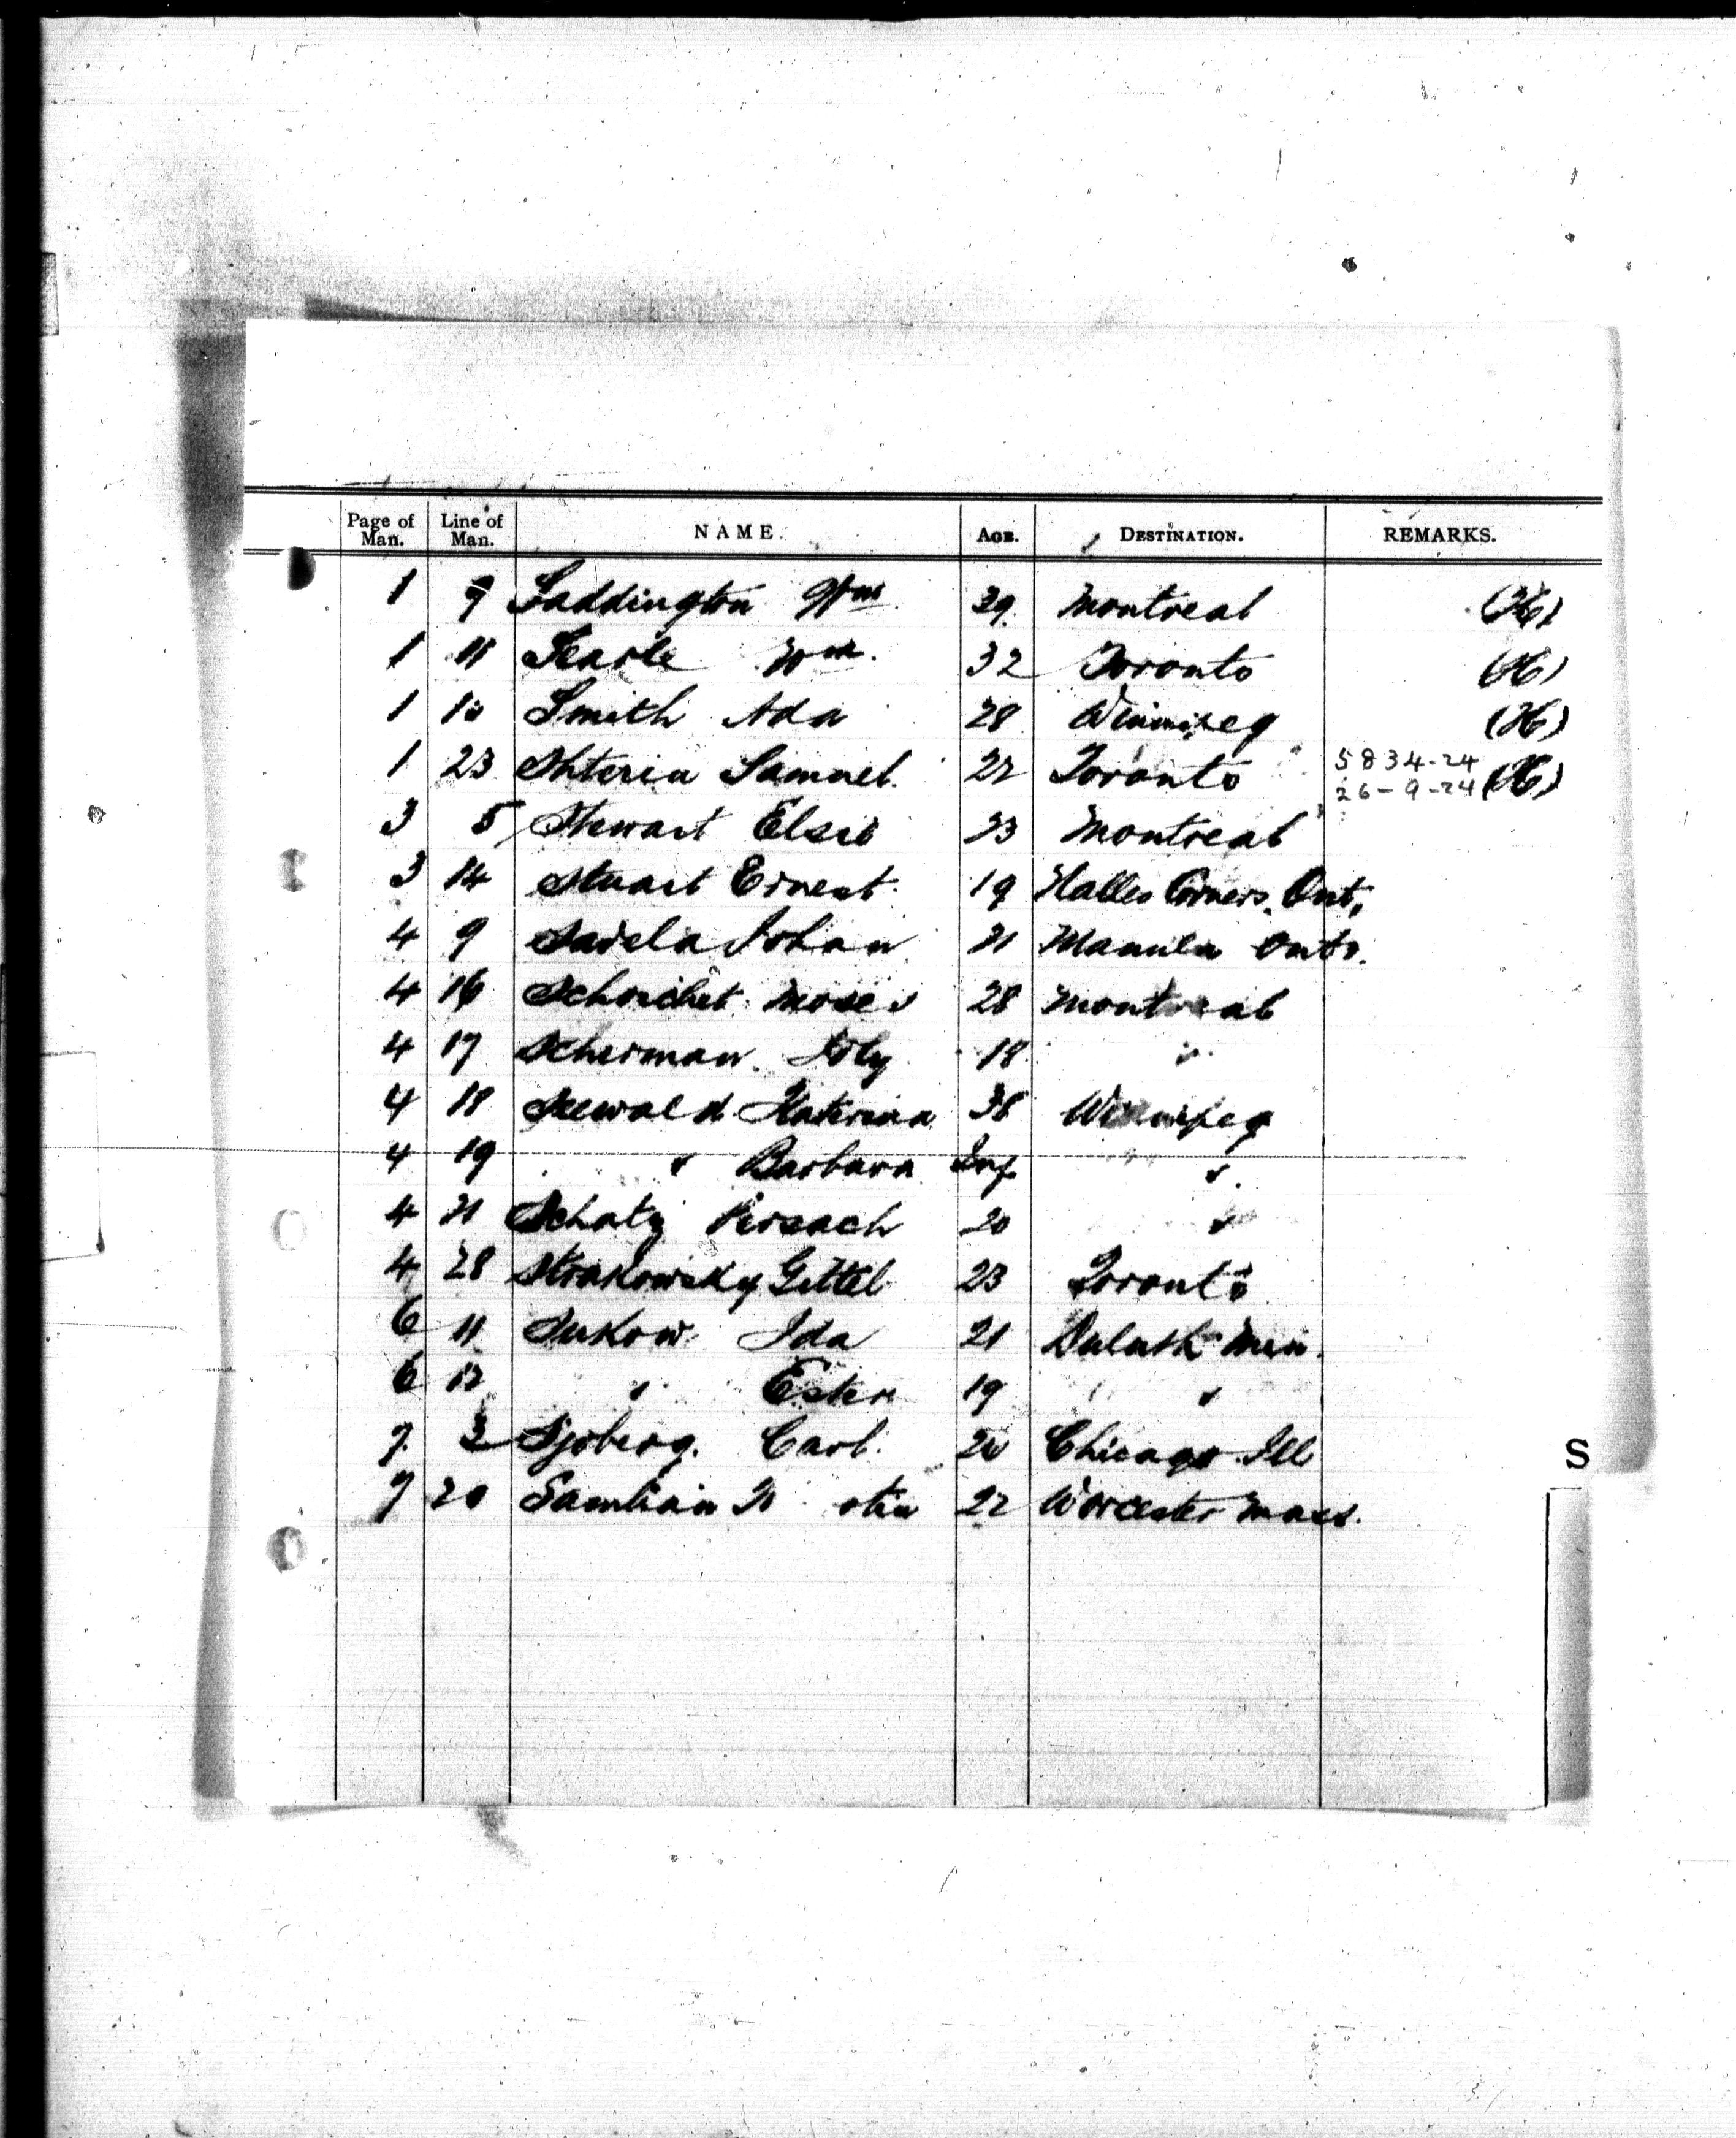 Page of Man. Line of Man. NAME. AGE. DESTINATION. REMARKS.
1 9 Saddington Wm 39 Montreal (H)
1 11 Searle Wm. 32 Toronto (H)
1 Smith Ada 28 Winnipeg (H)
1 23 Shterin Samuel. 22 Toronto 5834-24 26-9-24 (H)
3 5 Stewart Elsie 33 Montreal
3 14 Stuart Ernest. 19 Halls Corners, Ont.
4 9 Johan Ont.
4 16 Schoichet Moses 28 Montreal
4 17 Scherman 18 "
4 18 Seewald Katerina 38 Winnipeg
4 19 " Barbara Inf "
4 21 Schatz 20 "
4 28 Strakowsky Gittel 23 Toronto
6 11 Sukow Ida 21 Duluth Min.
6 12 " Ester 19 "
7 3 Sjoberg. Carl. 20 Chicago Ill
7 20 22 Worcester Mass.
S